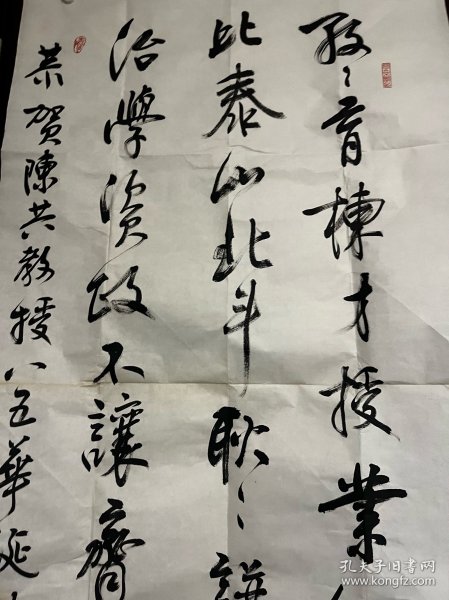 孜〻育棟才授業
比泰山北斗耿〻
治學資政不讓齊
恭賀陳共教授八五華誕
孔夫子旧书网
www.kongfz.com